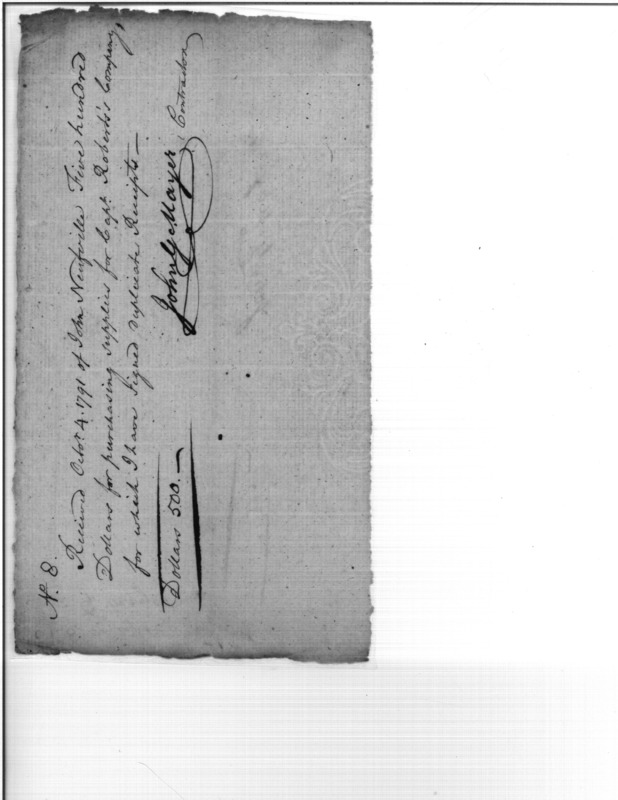 No. 8.
Received Octor. 4. 1791 of John Neufville Five hundred
Dollars for purchasing supplies for Capt. Roberts's Company,
for which I have signed duplicate Receipts—
Dollars 500.—
John G Mayer Contractor